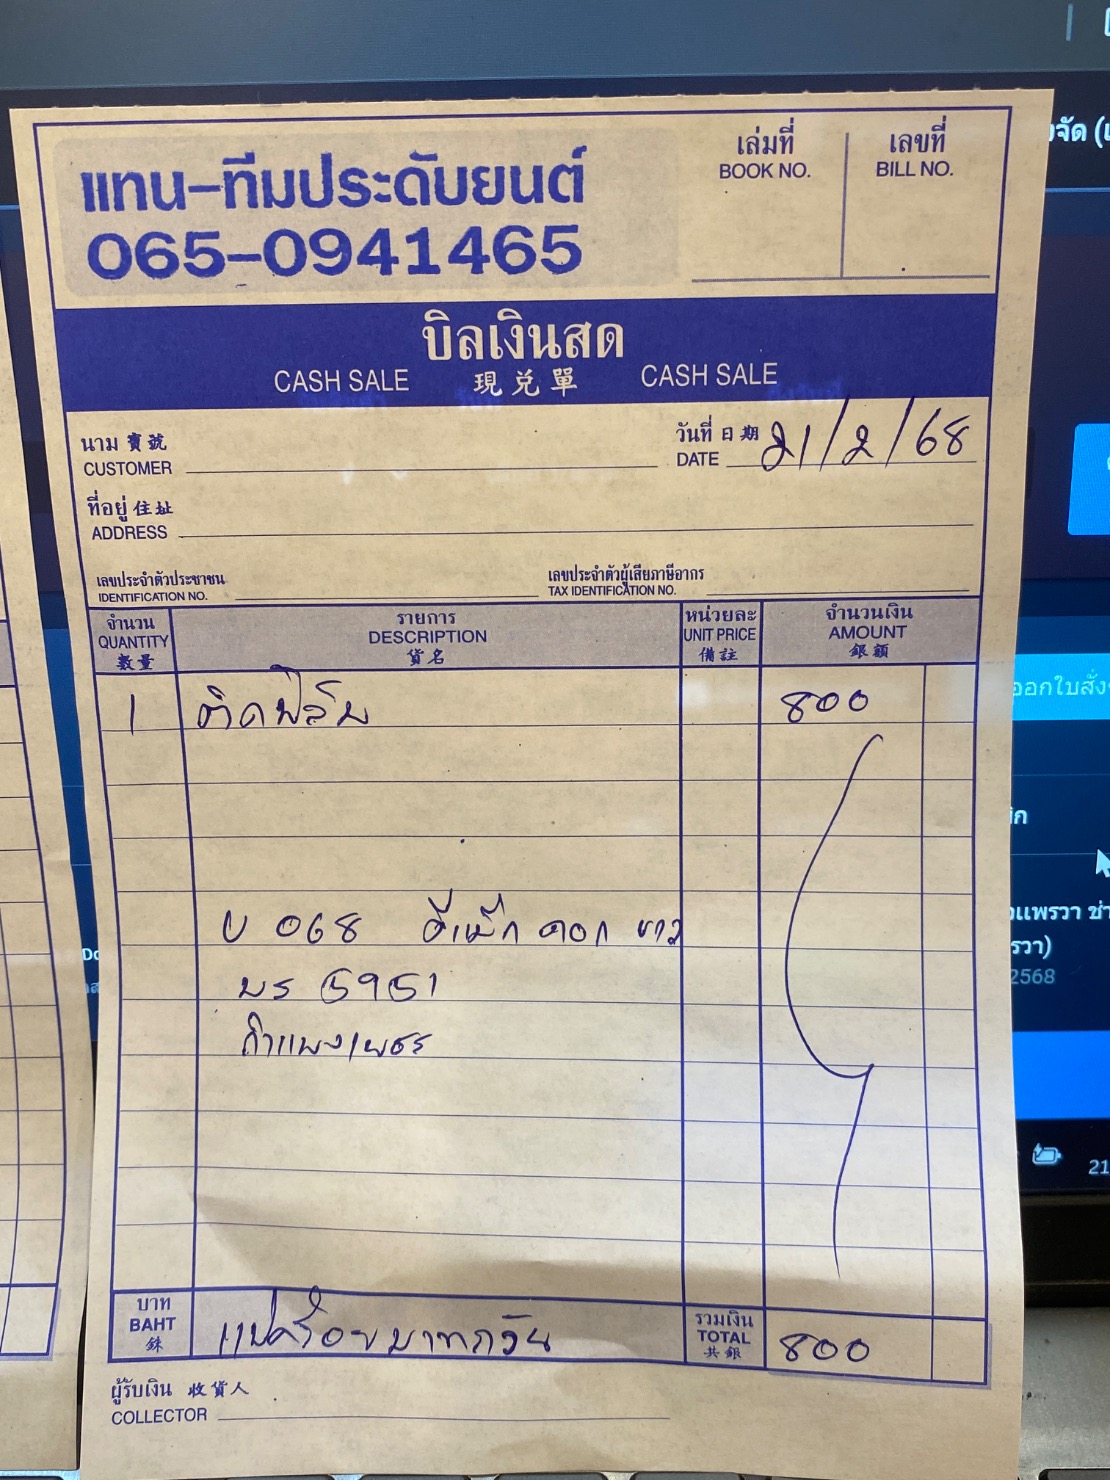 แทน-ทีมประดับยนต์
065-0941465
เล่มที่
BOOK NO.
เลขที่
BILL NO.
บิลเงินสด
CASH SALE 現兑單 CASH SALE
นาม 寶號
CUSTOMER
วันที่ 日期
DATE 21/2/68
ที่อยู่ 住址
ADDRESS
เลขประจำตัวประชาชน
IDENTIFICATION NO.
เลขประจำตัวผู้เสียภาษีอากร
TAX IDENTIFICATION NO.
จำนวน
QUANTITY
數量
รายการ
DESCRIPTION
貨名
หน่วยละ
UNIT PRICE
備註
จำนวนเงิน
AMOUNT
銀額
1 ติดฟิล์ม 800
U 068 ดีแม็ก ตอก ขาว
บร 5951
กำแพงเพชร
บาท
BAHT
銖
แปดร้อยบาทถ้วน
รวมเงิน
TOTAL
共銀
800
ผู้รับเงิน 收貨人
COLLECTOR
ออกใบสั่ง
วแพรวา ช่า
รวา)
2568
21